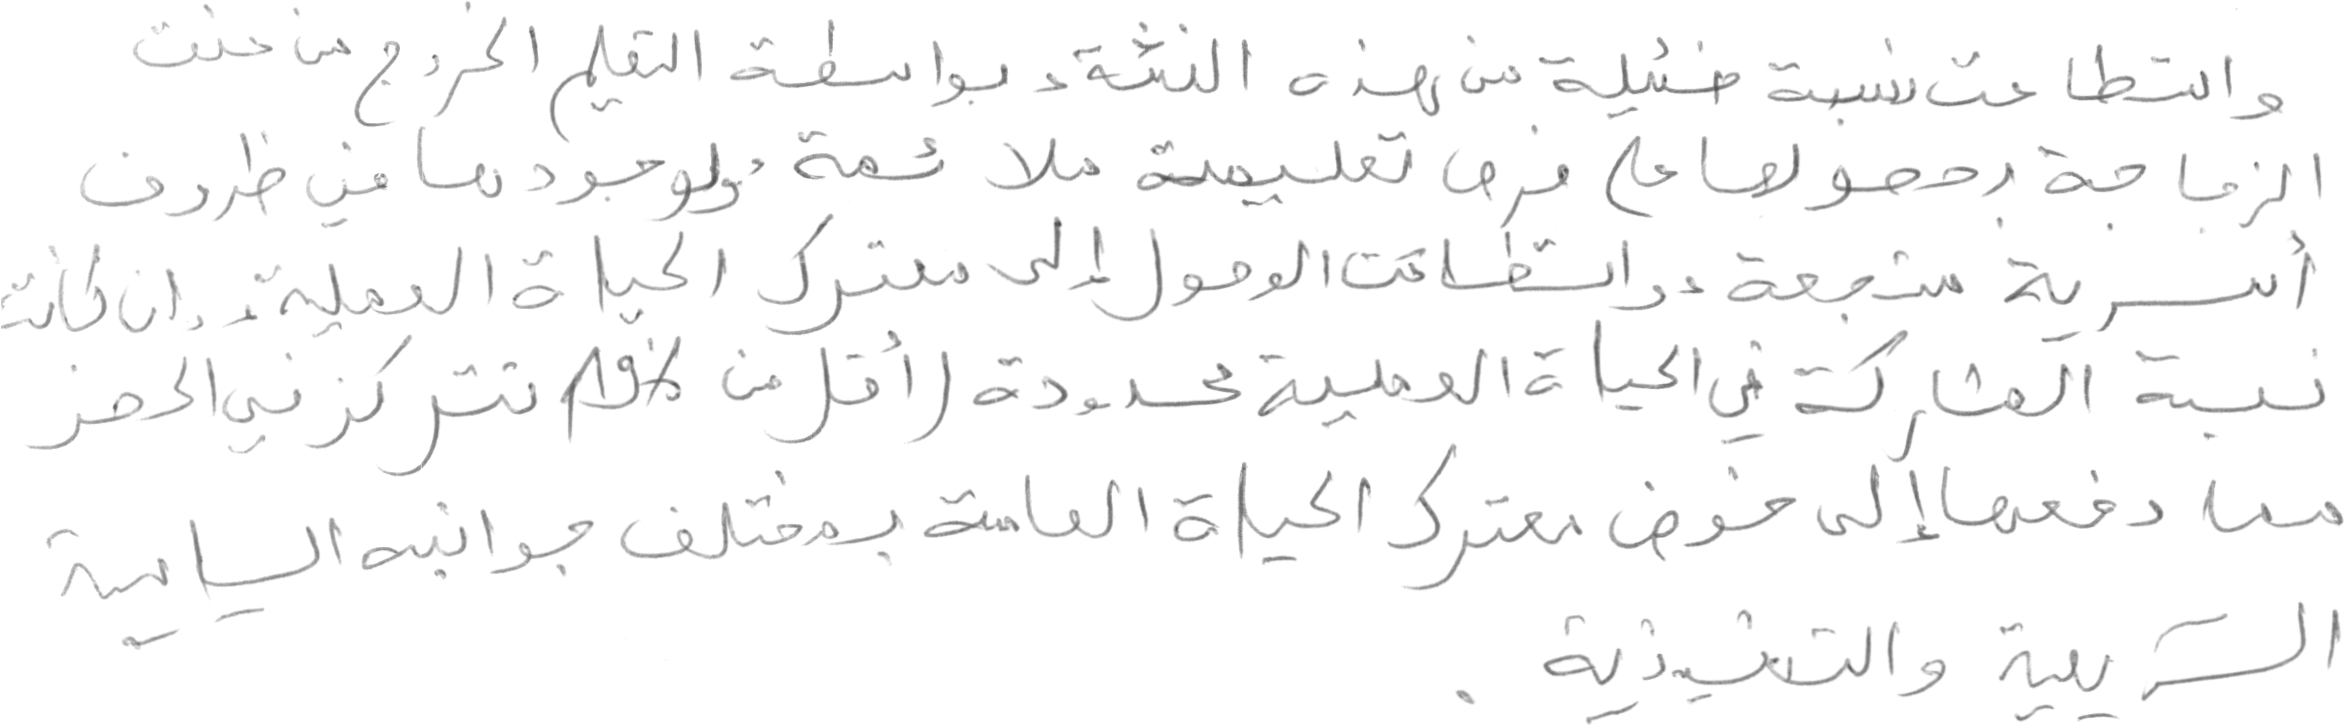 واستطاعت نسبة ضئيلة من هذه الفئة، بواسطة التعليم الخروج من عنق
الزجاجة، وحصولها على فرص تعليمية ملائمة ولوجودها في ظروف
أسرية مشجعة، واستطاعت الوصول إلى معترك الحياة العملية، وإن كانت
نسبة المشاركة في الحياة العملية محدودة (أقل من تتركز في الحضر
مما دفعها إلى خوض معترك الحياة العامة بمختلف جوانبه السياسية
التشريعية والتنفيذية .